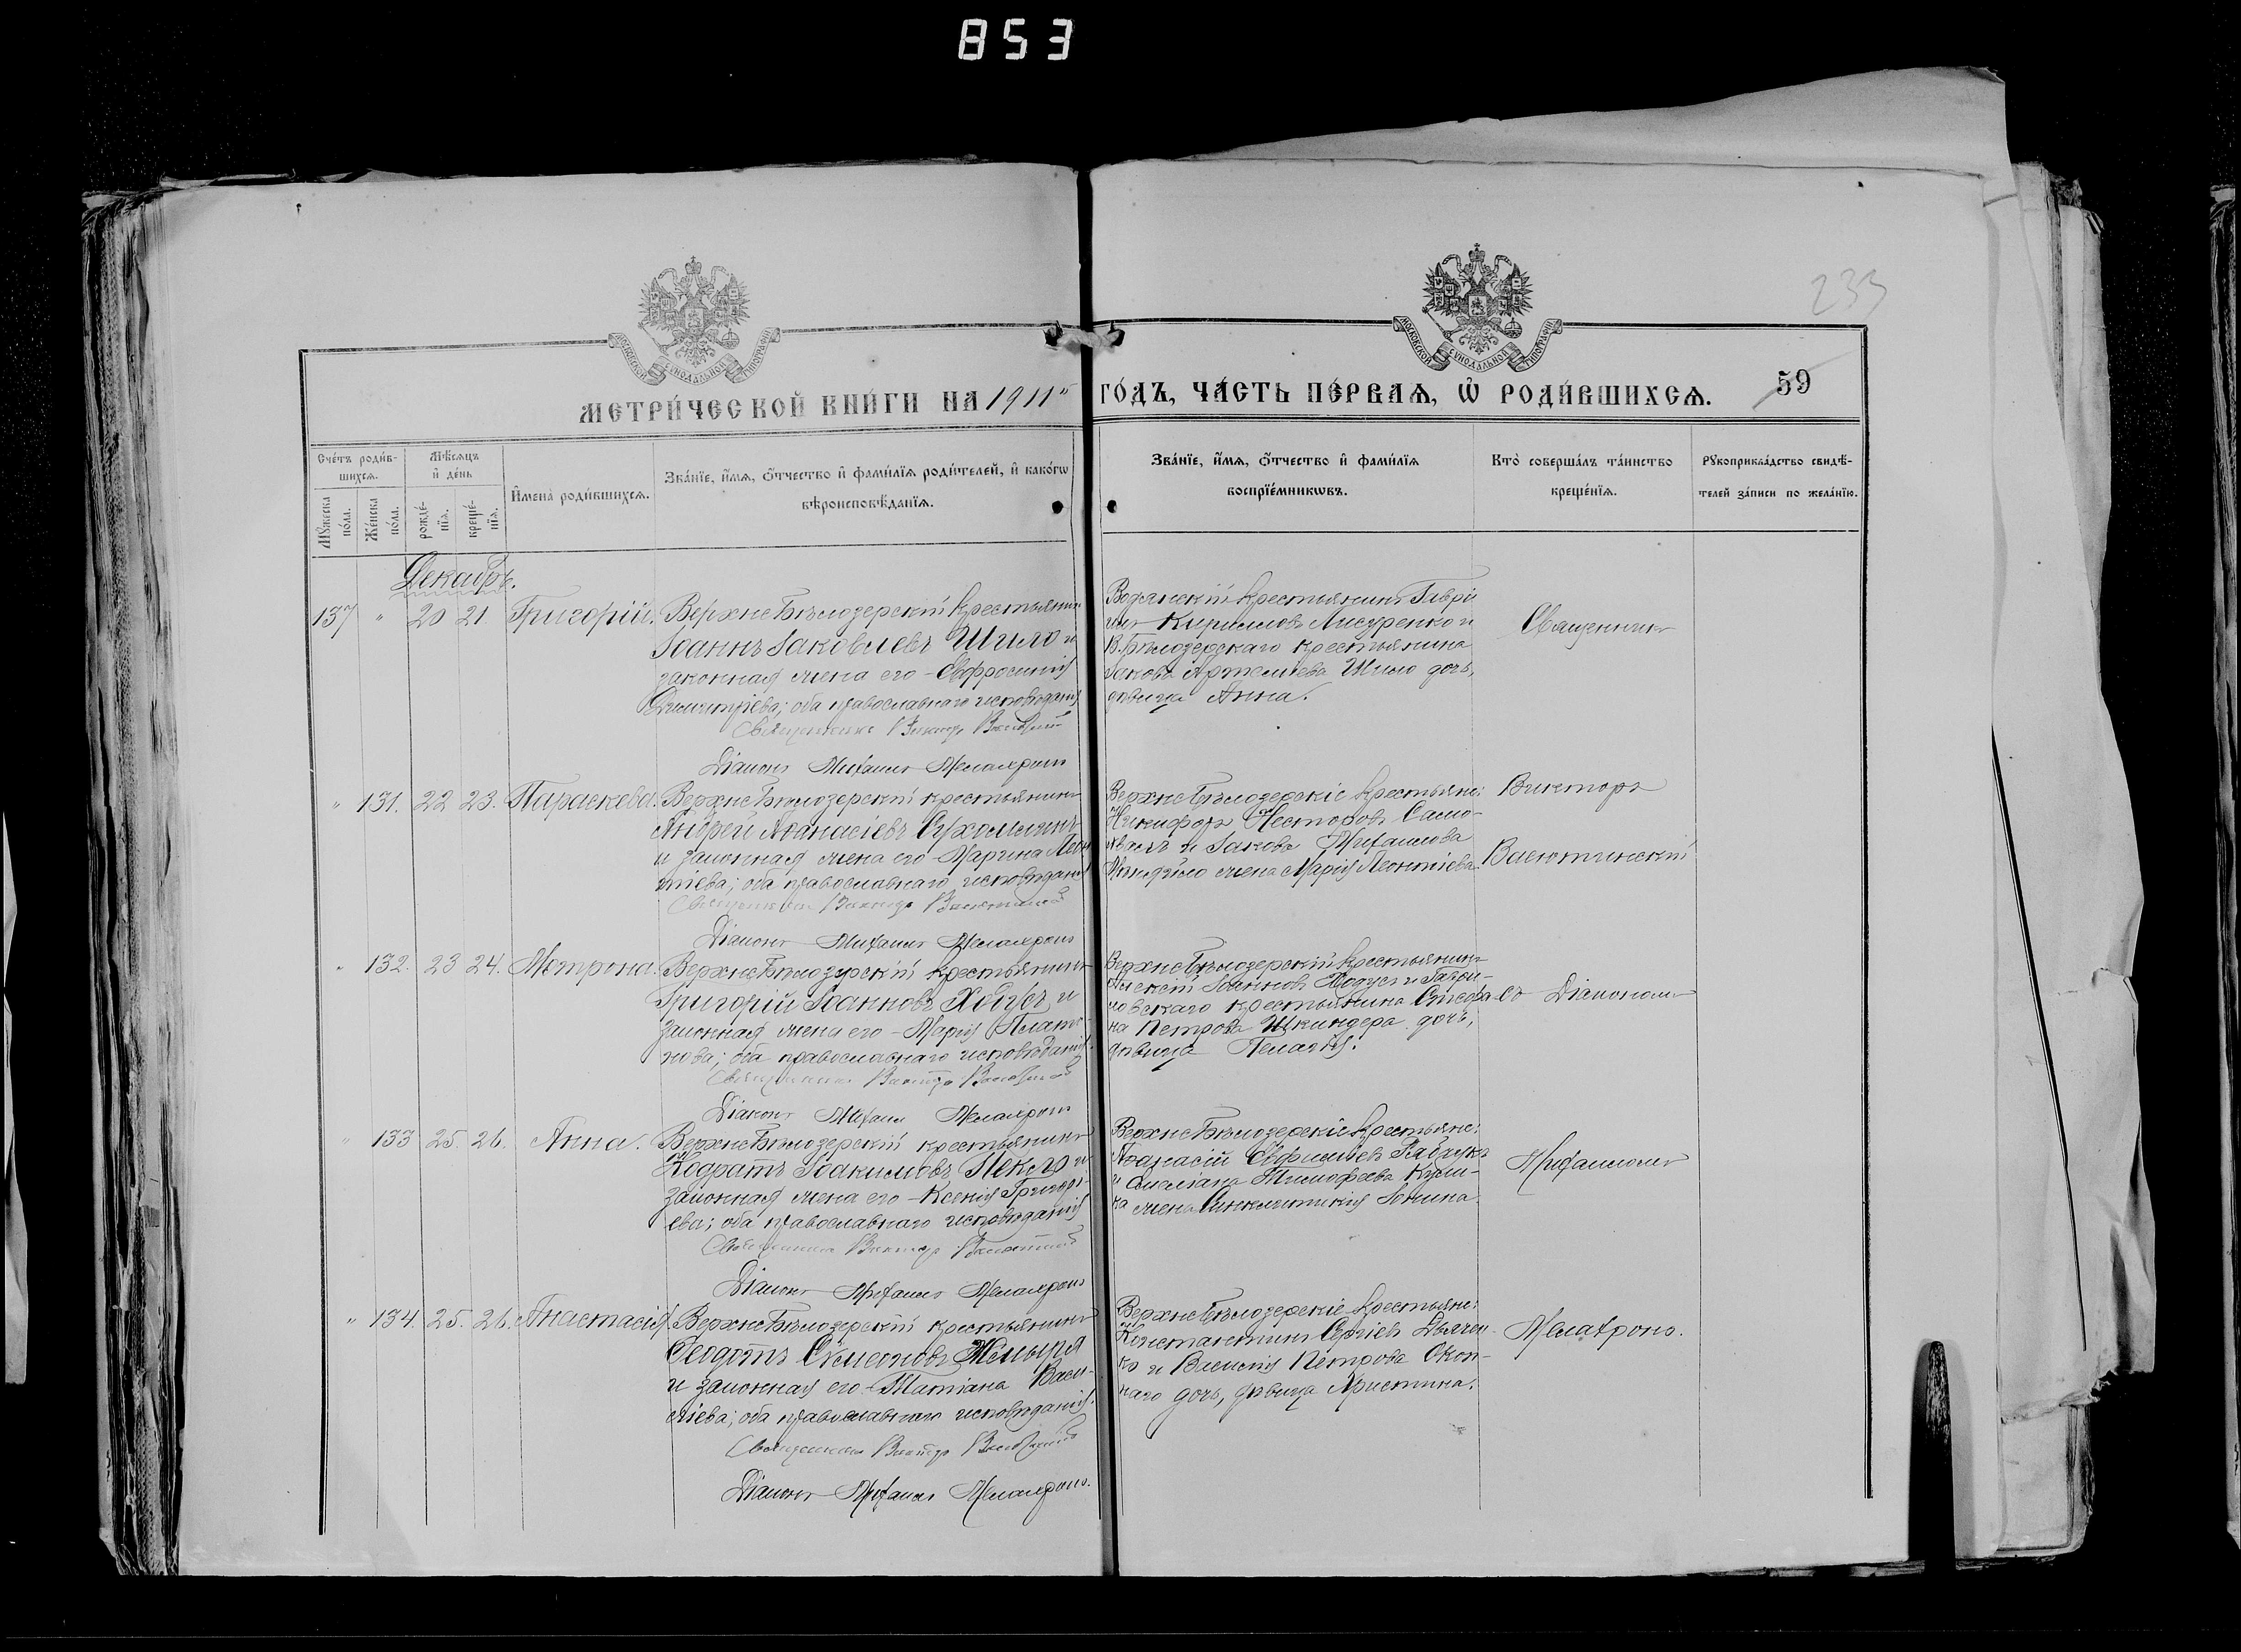 853
235
МОСКОВСКОЙ СѴНОДАЛЬНОЙ ТИПОГРАФІИ
МОСКОВСКОЙ СѴНОДАЛЬНОЙ ТИПОГРАФІИ
МЕТРИ́ЧЕСКОЙ КНИ́ГИ НА 1911 ГО́ДЪ, ЧА́СТЬ ПЕ́РВАѦ, Ѡ҆ РОДИ́ВШИХСѦ. 59
Сче́тъ роди́в-
шихсѧ.
Мꙋ́жеска по́ла.
Же́нска по́ла.
Мѣ́сѧцъ и҆ де́нь
рожде́-нїѧ.
креще́-нїѧ.
И҆мена̀ роди́вшихсѧ.
Зва́нїе, и҆́мѧ, ѻ҆́тчество и҆ фами́лїѧ роди́телей, и҆ како́гѡ
вѣроисповѣ́данїѧ.
Зва́нїе, и҆́мѧ, ѻ҆́тчество и҆ фами́лїѧ
воспрїе́мникѡвъ.
Кто̀ соверша́лъ та́инство
креще́нїѧ.
Рꙋкоприкла́дство свидѣ́-
телей за́писи по жела́нїю.
Декабрь.
137 " 20 21 Григорій. Верхне Бѣлозерскій крестьянинъ
Іоаннъ Іаковлевъ Шило и
законная жена его - Евфросинія
Димитріева; оба православнаго исповѣданія
Священникъ Викторъ
Діаконъ Михаилъ
Водянскій крестьянинъ Гаврі
илъ Кирилловъ Лисуренко и
В. Бѣлозерскаго крестьянина
Іакова Артеміева Шило дочь,
дѣвица Анна.
Священникъ
" 131. 22 23. Параскева. Верхне Бѣлозерскій крестьянинъ
Андрей Аѳанасіевъ Сухомлинъ
и законная жена его - Марина Леон
тіева; оба православнаго исповѣданія
Священникъ Викторъ
Діаконъ Михаилъ
Верхне Бѣлозерскіе крестьяне:
Никифоръ Несторовъ Само-
хвалъ и Іакова Михаилова
жена Марія Леонтіева
Викторъ
" 132. 23 24. Матрона. Верхне Бѣлозерскій крестьянинъ
Григорій Іоанновъ Ходусъ и
законная жена его - Марія Плато-
нова; оба православнаго исповѣданія.
Священникъ Викторъ
Діаконъ Михаилъ
Верхне Бѣлозерскій крестьянинъ
Алексій Іоанновъ Ходусъ и Гаври-
ловскаго крестьянина Стефа-
на Петрова Шкиндера дочь,
дѣвица Пелагія.
съ Діакономъ
" 133 25. 26. Анна. Верхне Бѣлозерскій крестьянинъ
Кодратъ Іоакимовъ и
законная жена его - Ксенія Григорі-
ева; оба православнаго исповѣданія
Священникъ Викторъ
Діаконъ Михаилъ
Верхне Бѣлозерскіе крестьяне:
Аѳанасій Евфиміевъ Рябчукъ
и Емеліана Тимофеева
жена Синклитикія
Михаиломъ
" 134. 25. 26. Анастасія. Верхне Бѣлозерскій крестьянинъ
Ѳеодотъ Симеоновъ
и законная его - Татіана Васи-
ліева; оба православнаго исповѣданія.
Священникъ Викторъ
Діаконъ Михаилъ
Верхне Бѣлозерскіе крестьяне:
Константинъ Сергіевъ Дьячен-
ко и Василія Петрова Окон-
наго дочь, дѣвица Христина.